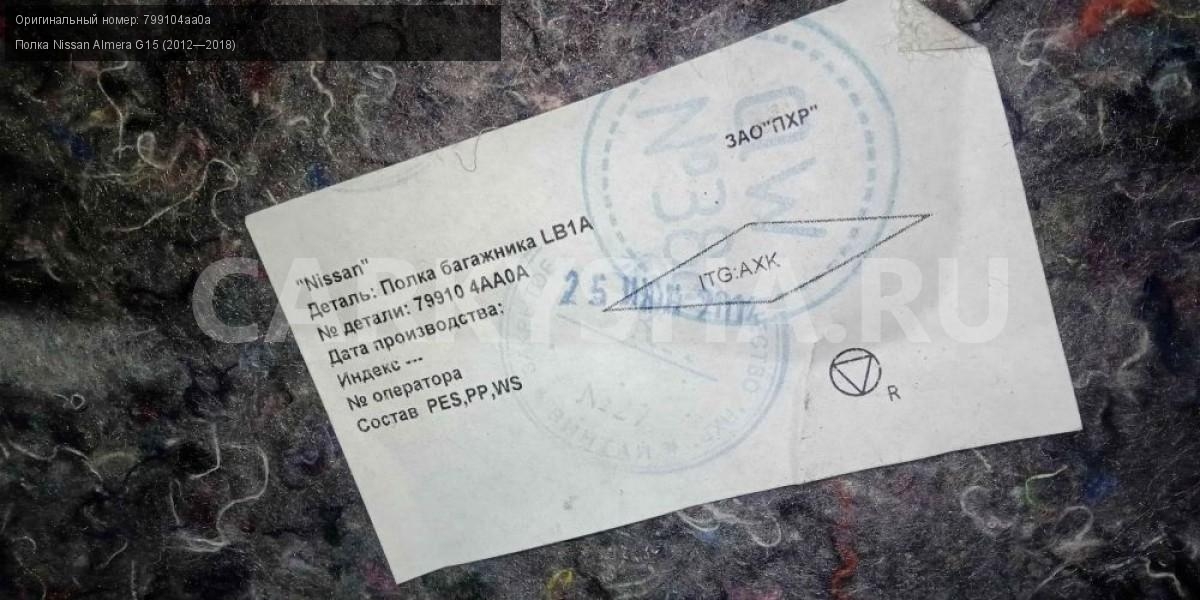 Оригинальный номер: 799104aa0a
Полка Nissan Almera G15 (2012—2018)
ЗАО"ПХР"
№38
"Nissan"
Деталь: Полка багажника LB1A
№ детали: 79910 4AA0A
Дата производства:
25
2014
Индекс ---
№ оператора
Состав PES,PP,WS
ITG:AXK
R
CARRYSHA.RU